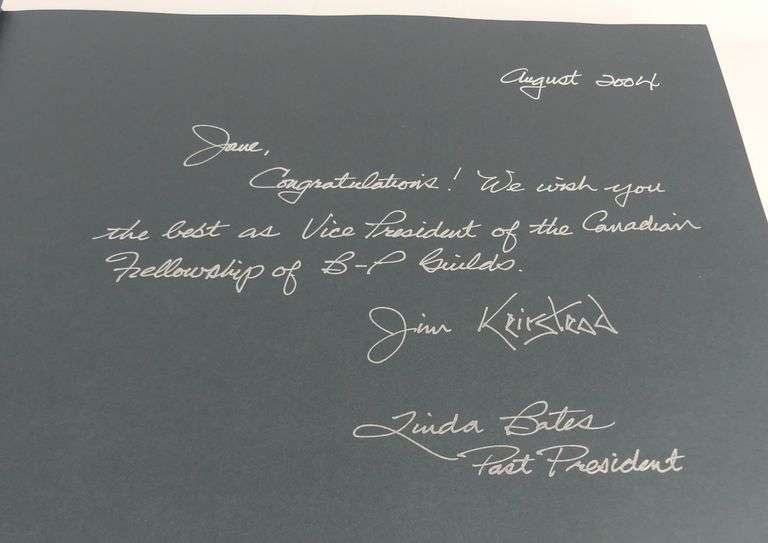 August 2004
Jane,
Congratulations! We wish you
the best as Vice President of the Canadian
Fellowship of B-P Guilds.
Jim
Linda Bates
Past President